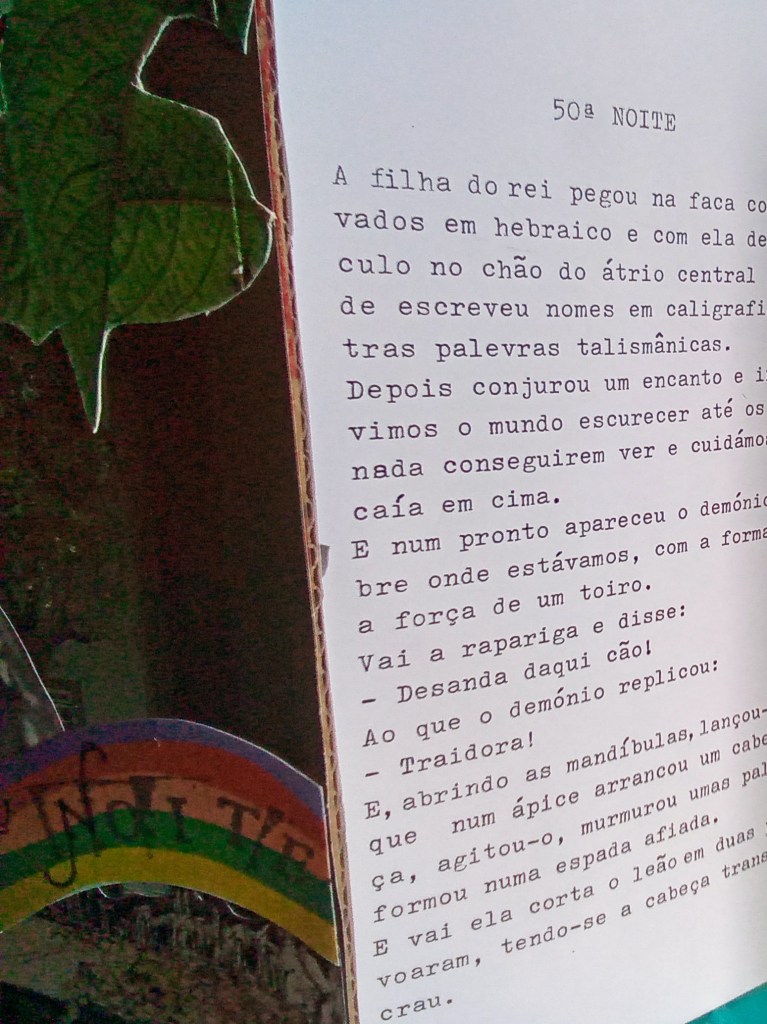 50ª NOITE
A filha do rei pegou na faca co
vados em hebraico e com ela de
culo no chão do átrio central
de escreveu nomes em caligrafi
tras palevras talismânicas.
Depois conjurou um encanto e i
vimos o mundo escurecer até os
nada conseguirem ver e cuidámo
caía em cima.
E num pronto apareceu o demóni
bre onde estávamos, com a forma
a força de um toiro.
Vai a rapariga e disse:
- Desanda daqui cão!
Ao que o demónio replicou:
- Traidora!
E, abrindo as mandíbulas, lançou-
que num ápice arrancou um cabe
ça, agitou-o, murmurou umas pal
formou numa espada afiada.
E vai ela corta o leão em duas
voaram, tendo-se a cabeça trans
crau.